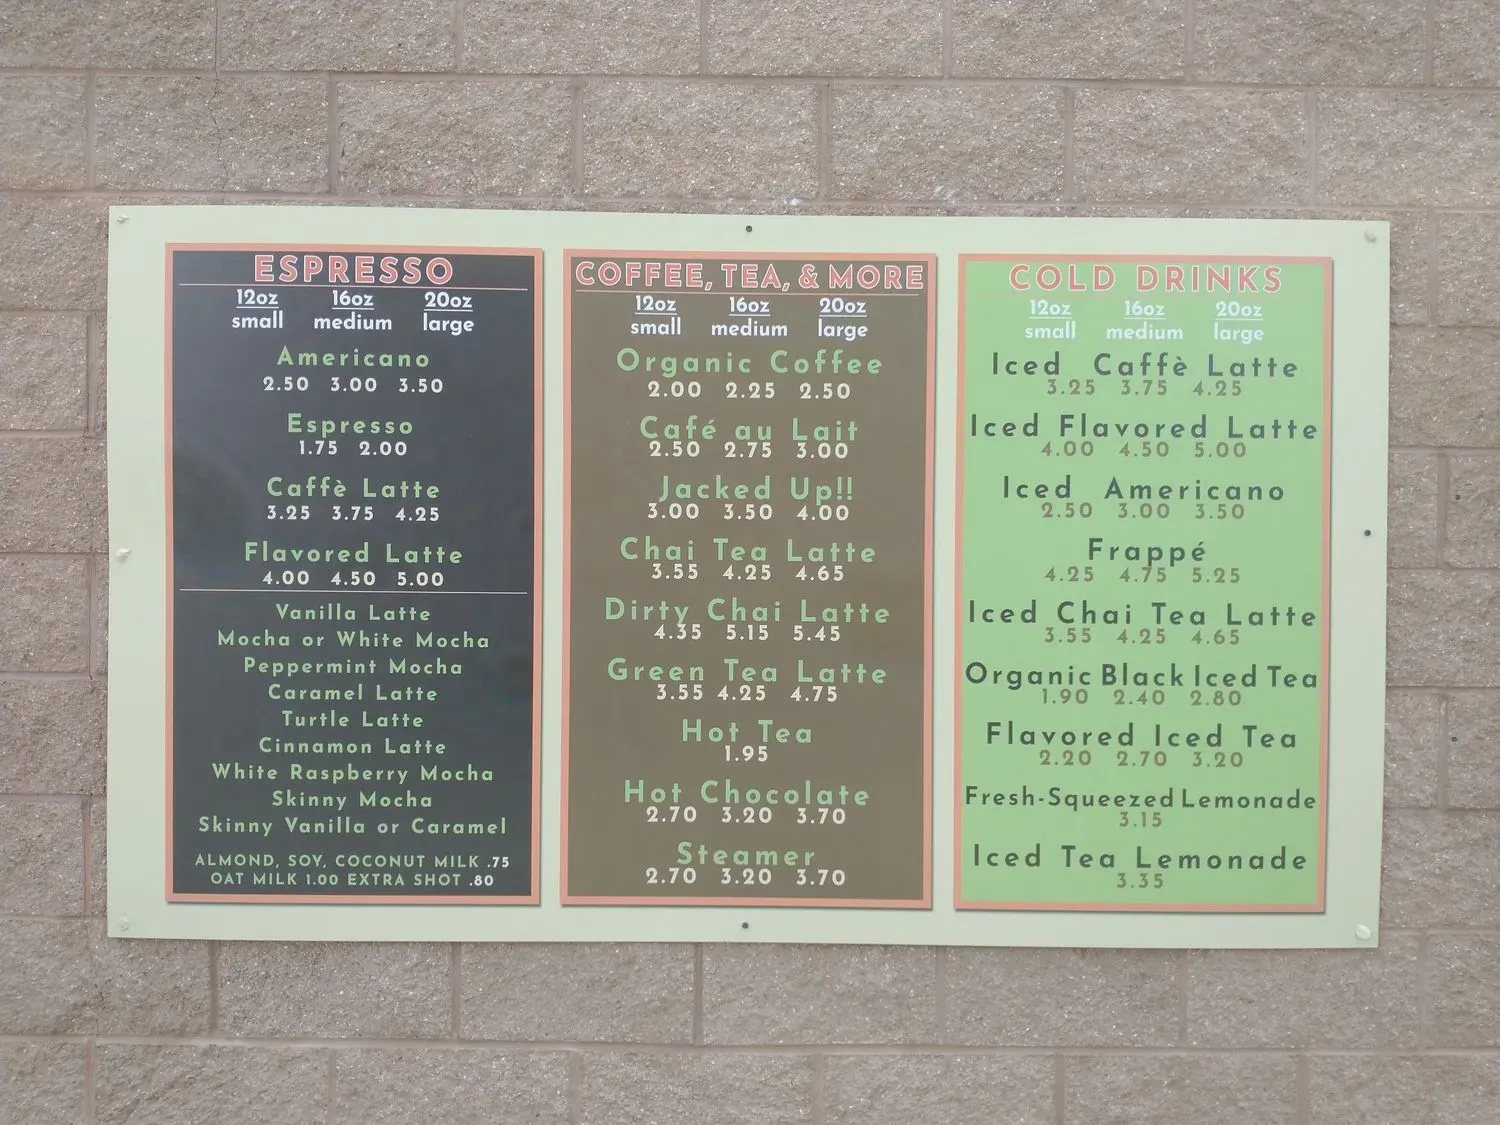 ESPRESSO
12oz 16oz 20oz
small medium large
Americano
2.50 3.00 3.50
Espresso
1.75 2.00
Caffè Latte
3.25 3.75 4.25
Flavored Latte
4.00 4.50 5.00
Vanilla Latte
Mocha or White Mocha
Peppermint Mocha
Caramel Latte
Turtle Latte
Cinnamon Latte
White Raspberry Mocha
Skinny Mocha
Skinny Vanilla or Caramel
ALMOND, SOY, COCONUT MILK .75
OAT MILK 1.00 EXTRA SHOT .80
COFFEE, TEA, & MORE
12oz 16oz 20oz
small medium large
Organic Coffee
2.00 2.25 2.50
Café au Lait
2.50 2.75 3.00
Jacked Up!!
3.00 3.50 4.00
Chai Tea Latte
3.55 4.25 4.65
Dirty Chai Latte
4.35 5.15 5.45
Green Tea Latte
3.55 4.25 4.75
Hot Tea
1.95
Hot Chocolate
2.70 3.20 3.70
Steamer
2.70 3.20 3.70
COLD DRINKS
12oz 16oz 20oz
small medium large
Iced Caffè Latte
3.25 3.75 4.25
Iced Flavored Latte
4.00 4.50 5.00
Iced Americano
2.50 3.00 3.50
Frappé
4.25 4.75 5.25
Iced Chai Tea Latte
3.55 4.25 4.65
Organic Black Iced Tea
1.90 2.40 2.80
Flavored Iced Tea
2.20 2.70 3.20
Fresh-Squeezed Lemonade
3.15
Iced Tea Lemonade
3.35